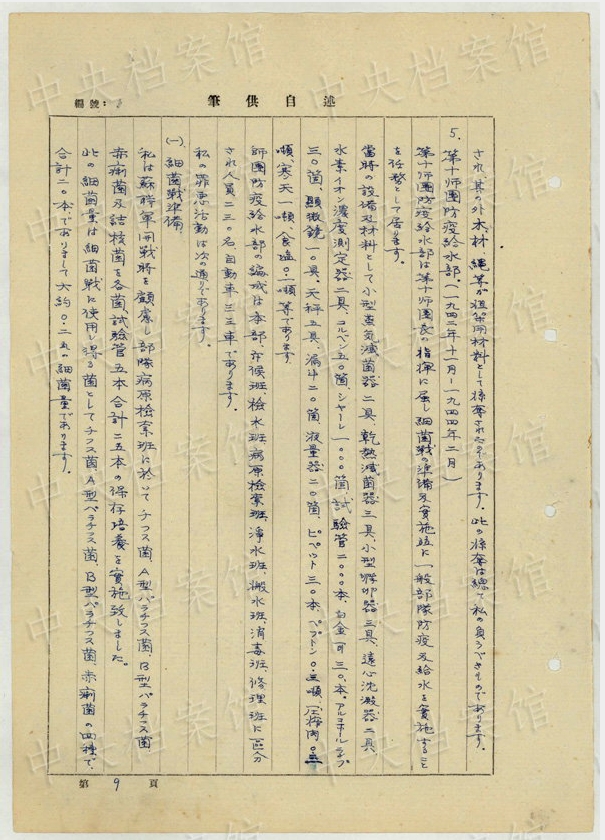 述自供筆
編號：
され其の外木材、縄等が担架用材料として掠奪されたのであります。此の掠奪は總て私の負ふべきものであります。
5. 第十師團防疫給水部。（一九四二年十一月－一九四四年二月）
第十師團防疫給水部は第十師團長の指揮に屬し細菌戰の準備及實施並に一般部隊防疫及給水を實施すること
を任務として居ります。
當時の設備及材料として小型蒸氣滅菌器二具、乾熱滅菌器三具、小型孵卵器三具、遠心沈澱器二具、
水素イオン濃度測定器二具、コルベン五〇箇、シャーレ一〇〇〇箇、試驗管二〇〇〇本、白金耳三〇本、アルコホールランプ
三〇箇、顯微鏡一〇具、天秤五具、漏斗二〇箇、液量器二〇箇、ピペット三〇本、ペプトン〇.三噸、圧搾肉〇.三
噸、寒天一噸、食塩〇.一噸等であります。
師團防疫給水部の編成は本部、斥候班、檢水班、病原檢索班、淨水班、搬水班、消毒班、修理班に區分
され人員二三〇名、自動車三三車であります。
私の罪惡活動は次の通りであります。
(一)、細菌戰準備、
私は蘇聯軍開戰時を顧慮し部隊病原檢索班に於いてチフス菌、A型パラチフス菌、B型パラチフス菌
赤痢菌及結核菌を各菌試驗管五本合計二五本の保存培養を實施致しました。
此の細菌量は細菌戰に使用し得る菌としてチフス菌、A型パラチフス菌、B型パラチフス菌、赤痢菌の四種で、
合計二〇本でありまして大約〇.二瓦の細菌量であります。
第 9 頁
中央档案馆